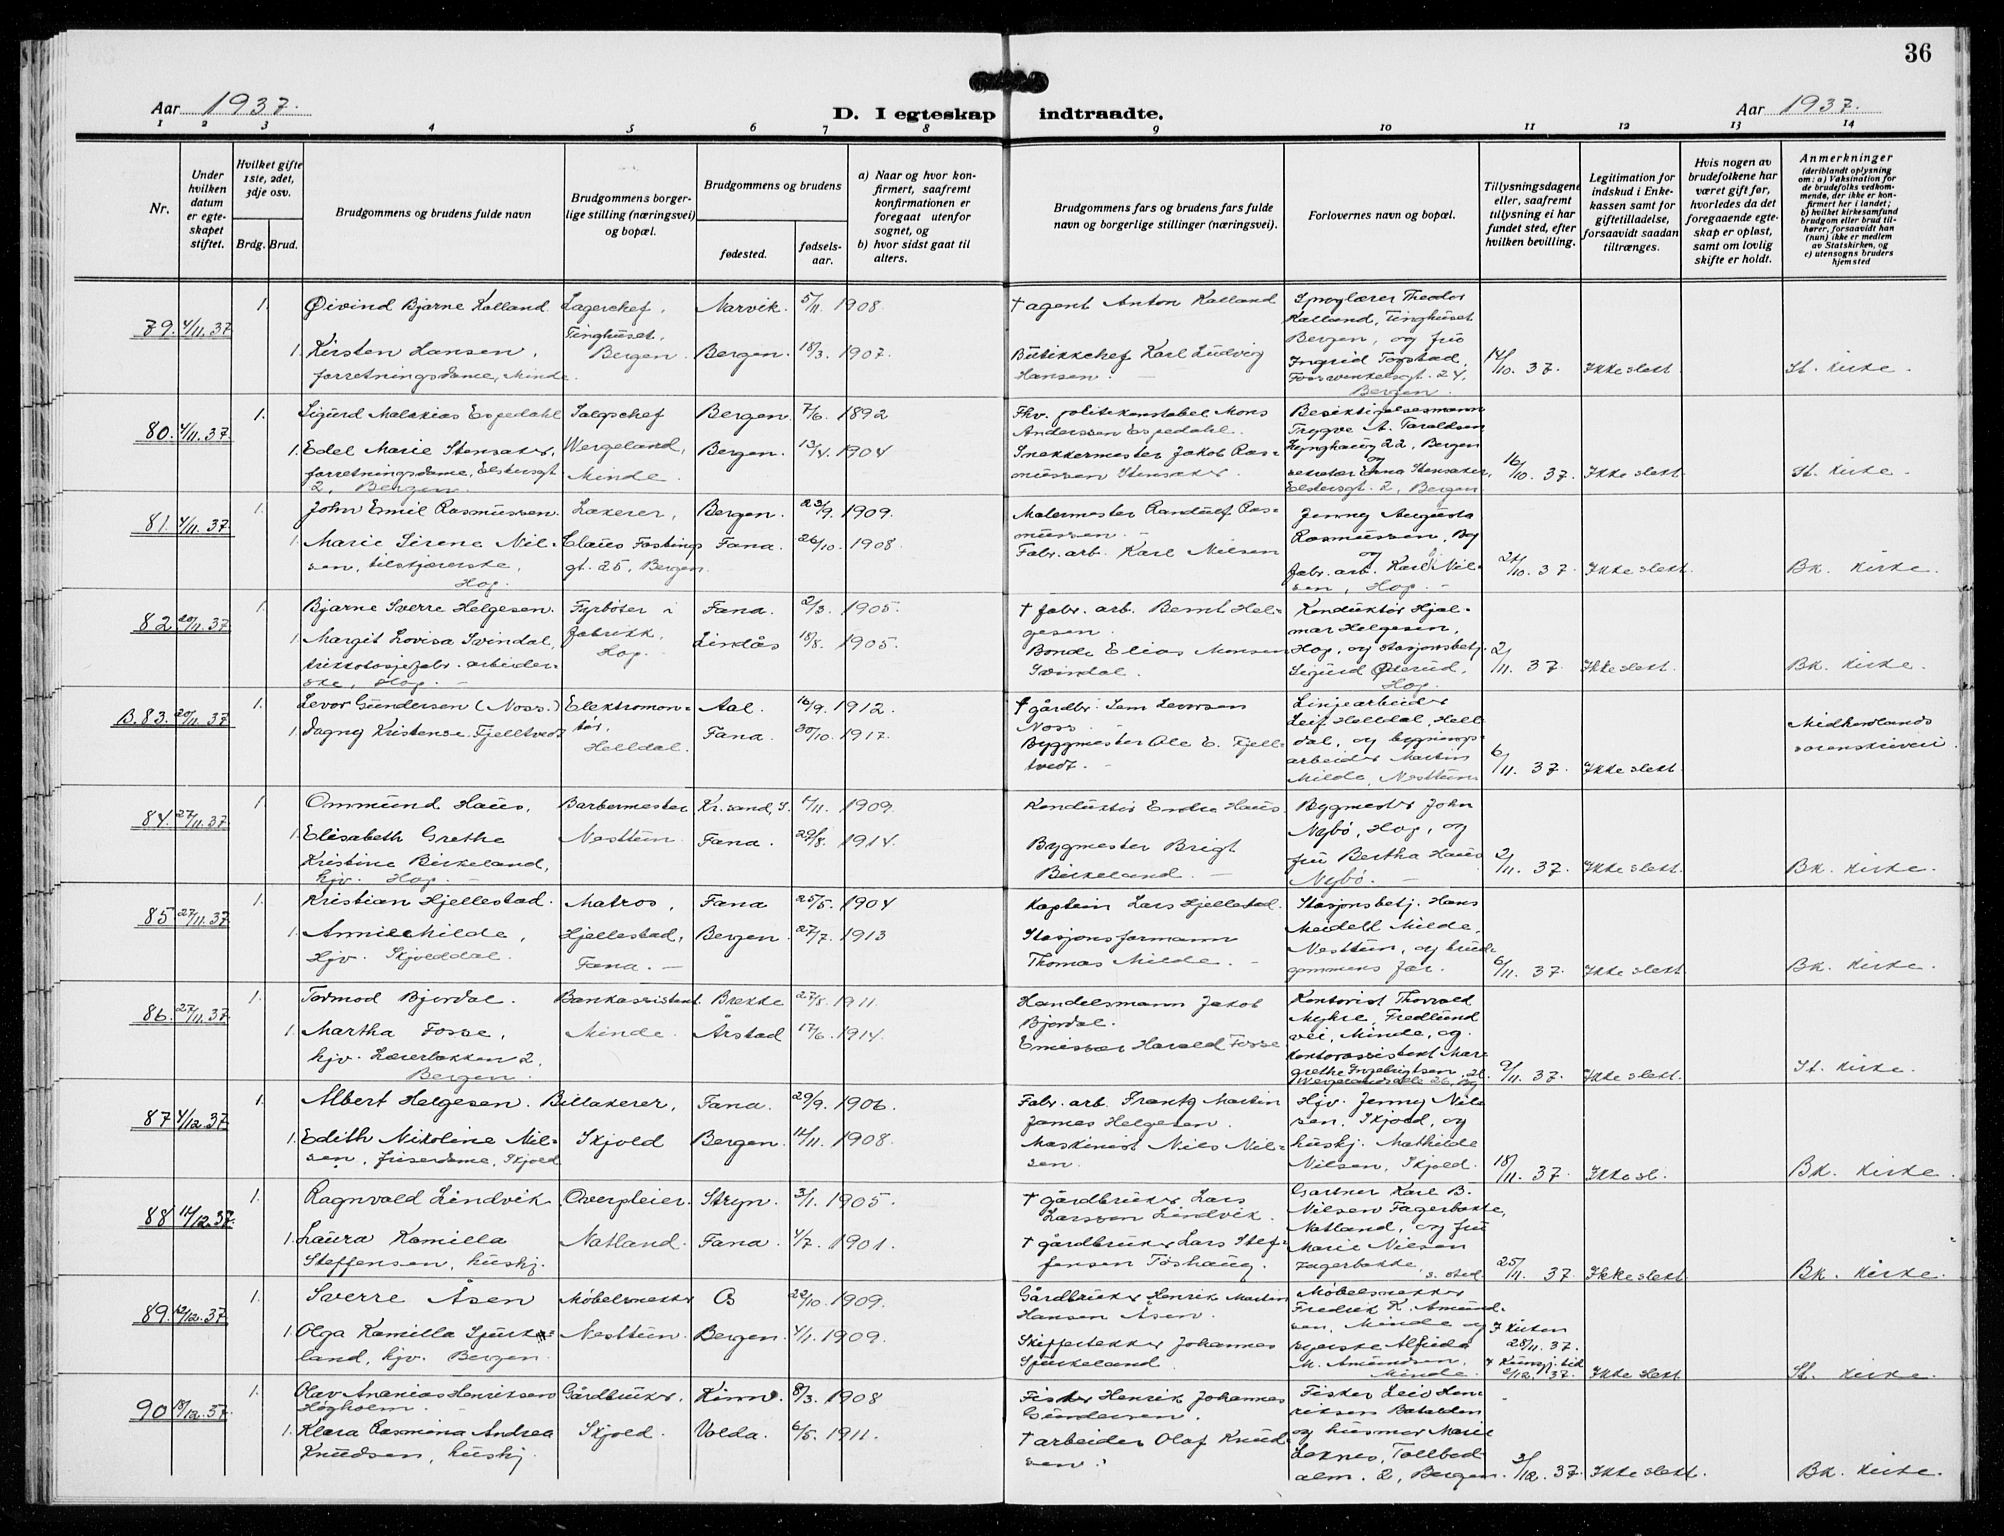 36
Aar 1937.
D. I egteskap indtraadte.
Aar 1937.
1 2 3 4 5 6 7 8 9 10 11 12 13 14
Nr.
Under hvilken datum er egteskapet stiftet.
Hvilket gifte 1ste, 2det, 3dje osv.
Brdg. Brud.
Brudgommens og brudens fulde navn
Brudgommens borgerlige stilling (næringsvei) og bopæl.
Brudgommens og brudens
fødested.
fødselsaar.
a) Naar og hvor konfirmert, saafremt konfirmationen er foregaat utenfor sognet, og
b) hvor sidst gaat til alters.
Brudgommens fars og brudens fars fulde navn og borgerlige stillinger (næringsvei).
Forlovernes navn og bopæl.
Tillysningsdagene eller, saafremt tillysning ei har fundet sted, efter hvilken bevilling.
Legitimation for indskud i Enkekassen samt for giftetilladelse, forsaavidt saadan tiltrænges.
Hvis nogen av brudefolkene har været gift før, hvorledes da det foregaaende egteskap er opløst, samt om lovlig skifte er holdt.
Anmerkninger
(deriblandt oplysning om: a) Vaksination for de brudefolks vedkommende, der ikke er konfirmert her i landet; b) hvilket kirkesamfund brudgom eller brud tilhører, forsaavidt han (hun) ikke er medlem av Statskirken, og c) utensogns bruders hjemsted
79. 4/11. 37
1. Øivind Bjarne Kalland Lagerchef, Narvik. 5/11 1908. † agent Anton Kalland
Tinghuset, Bergen.
1. Kirsten Hansen, Bergen. 18/3. 1907. Butikkchef Karl Ludvig Hansen.
forretningsdame, Minde.
Sproglærer Theodor
Kalland, Tinghuset
Bergen, og frk
Ingrid Togstad,
Fosswinkelsgt. 24,
Bergen.
14/10. 37. Ikke slekt. St. kirke.
80. 4/11. 37
1. Sigurd Malakias Espedahl Salgschef Bergen 7/6. 1892 Fhv. politikonstabel Mons
Anderssen Espedahl.
1. Edel Marie Stensaker, Wergeland, Bergen. 13/4. 1904 Snekkermester Jakob Rasmussen Stensaker.
forretningsdame, Elstersgt Minde.
2, Bergen.
Besiktigelsesmann
Trygve A. Taraldsen
Lynghaug 22, Bergen
og
Elstersgt. 2, Bergen
16/10. 37. Ikke slekt St. kirke.
81. 4/11. 37
1. John Emil Rasmussen. Lakerer, Bergen. 23/9. 1909. Malermester Randulf Rasmussen.
1. Marie Sirene Nil- Claus Fastings Fana. 26/10. 1908. Fabr. arb. Karl Nilsen
sen, tilskjærerske, gt. 25, Bergen.
Hop.
Jenny Augusta
Rasmussen, Bg
og
fabr. arb. Karl Nilsen, Hop.
21/10. 37. Ikke slekt. Bk. kirke.
82. 20/11. 37
1. Bjarne Sverre Helgesen. Fyrbøter i Fana. 2/3. 1905. † fabr. arb. Bernt Helgesen.
1. Margit Lovisa Svindal, fabrikk, Lindås 18/8. 1905. Bonde Elias Monsen
trikotasjefabr. arbeider- Hop. Svindal.
ske, Hop.
Konduktør Hjalmar Helgesen,
Hop, og stasjonsbetj.
Sigurd Østerud,
Hop.
2/11. 37. Ikke slekt. Bk. kirke.
B. 83. 20/11. 37
1. Levor Gundersen (Noss.) Elektromontør, Aal. 16/9. 1912. † gårdbr. Sam Levorsen
Noss.
1. Dagny Kristense Fjelltvedt Helldal. Fana. 30/10. 1917. Byggmester Ole E. Fjelltvedt.
Linjearbeider
Leif Helldal, Helldal, og bygningsarbeider Martin
Milde, Nesttun.
6/11. 37. Ikke slekt. Midhordlands
sorenskriveri
84. 27/11. 37
1. Ommund Haus, Barbermester Kr.sand, S. 1909. Konduktør Endre Haus
1. Elisabeth Grethe Nesttun. Fana. 29/8. 1914. Bygmester Brigt
Kristine Birkeland, Birkeland.
hjv. Hop.
Bygmester John
Nybø, Hop, og
fru Bertha Haus
Nybø.
2/11. 37. Ikke slekt. Bk. kirke.
85. 27/11. 37
1. Kristian Hjellestad. Matros, Fana 25/5. 1904 Kaptein Lars Hjellestad.
1. Annie Milde, Hjellestad, Bergen 27/7. 1913 Stasjonsformann
Hjv. Skjolddal. Fana. Thomas Milde.
Stasjonsbetj. Hans
Meidell Milde,
Nesttun, og brudgommens far.
6/11. 37. Ikke slekt Bk. kirke.
86. 27/11. 37
1. Tormod Bjordal. Bankassistent Brekke 27/8. 1911. Handelsmann Jakob
Bjordal.
1. Martha Fosse, Minde. Årstad 17/6. 1914. Emissær Harald Fosse
hjv. Lærerbakken 2,
Bergen.
Kontorist Thorvald
Myhre, Fredlundvei, Minde, og
kontorassistent Margrethe Ingebrigtsen
9/11. 37. Ikke slekt. St. kirke.
87. 4/12. 37
1. Albert Helgesen. Billakerer, Fana. 29/9. 1906. Fabr. arb. Frantz Martin
James Helgesen.
1. Edith Nikoline Nil- Skjold Bergen. 14/11. 1908. Maskinist Nils Nilsen.
sen, friserdame, Skjold
Hjv. Jenny Nilsen, Skjold, og
huskj. Mathilde
Nilsen, Skjold.
18/11. 37. Ikke sl. Bk. kirke.
88. 11/12. 37.
1. Ragnvald Lindvik Overpleier. Stryn. 3/1. 1905. † gårdbruker Lars
Larssen Lindvik.
1. Laura Kamilla Natland. Fana. 4/7. 1901. † gårdbruker Lars Steffensen Toshaug.
Steffensen, huskj.
Gartner Karl B.
Nilsen Fagerbakke,
Natland, og fru
Marie Nilsen
Fagerbakke, s. sted
25/11. 37. Ikke slekt Bk. kirke.
89. 12/12. 37
1. Sverre Åsen Møbelsnekker Os 22/10. 1909. Gårdbruker Henrik Martin
Hansen Åsen.
1. Olga Kamilla Spurke- Nesttun. Bergen. 4/1. 1909. Skiffertekker Johannes
land, hjv. Bergen. Spurkeland.
Møbelsnekker
Fredrik K. Amundsen, Minde og
syerske Alfrida
M. Amundsen.
Minde.
I kirken
28/11. 37.
37. Ikke slekt St. kirke.
90. 18/12. 37
1. Olav Ananias Henriksen Gårdbruker, Kinn 8/3. 1908 Fisker Henrik Johannes
Høgholm. Gundersen.
1. Klara Rasmina Andrea Skjold. Volda. 6/5. 1911. † arbeider Olaf Knudsen.
Knudsen, huskj.
Fisker Leiv Henriksen Batalden
og husmor Marie
Loknes, Tollbodalm. 2, Bergen.
3/12. 37. Ikke slekt. Bk. kirke.